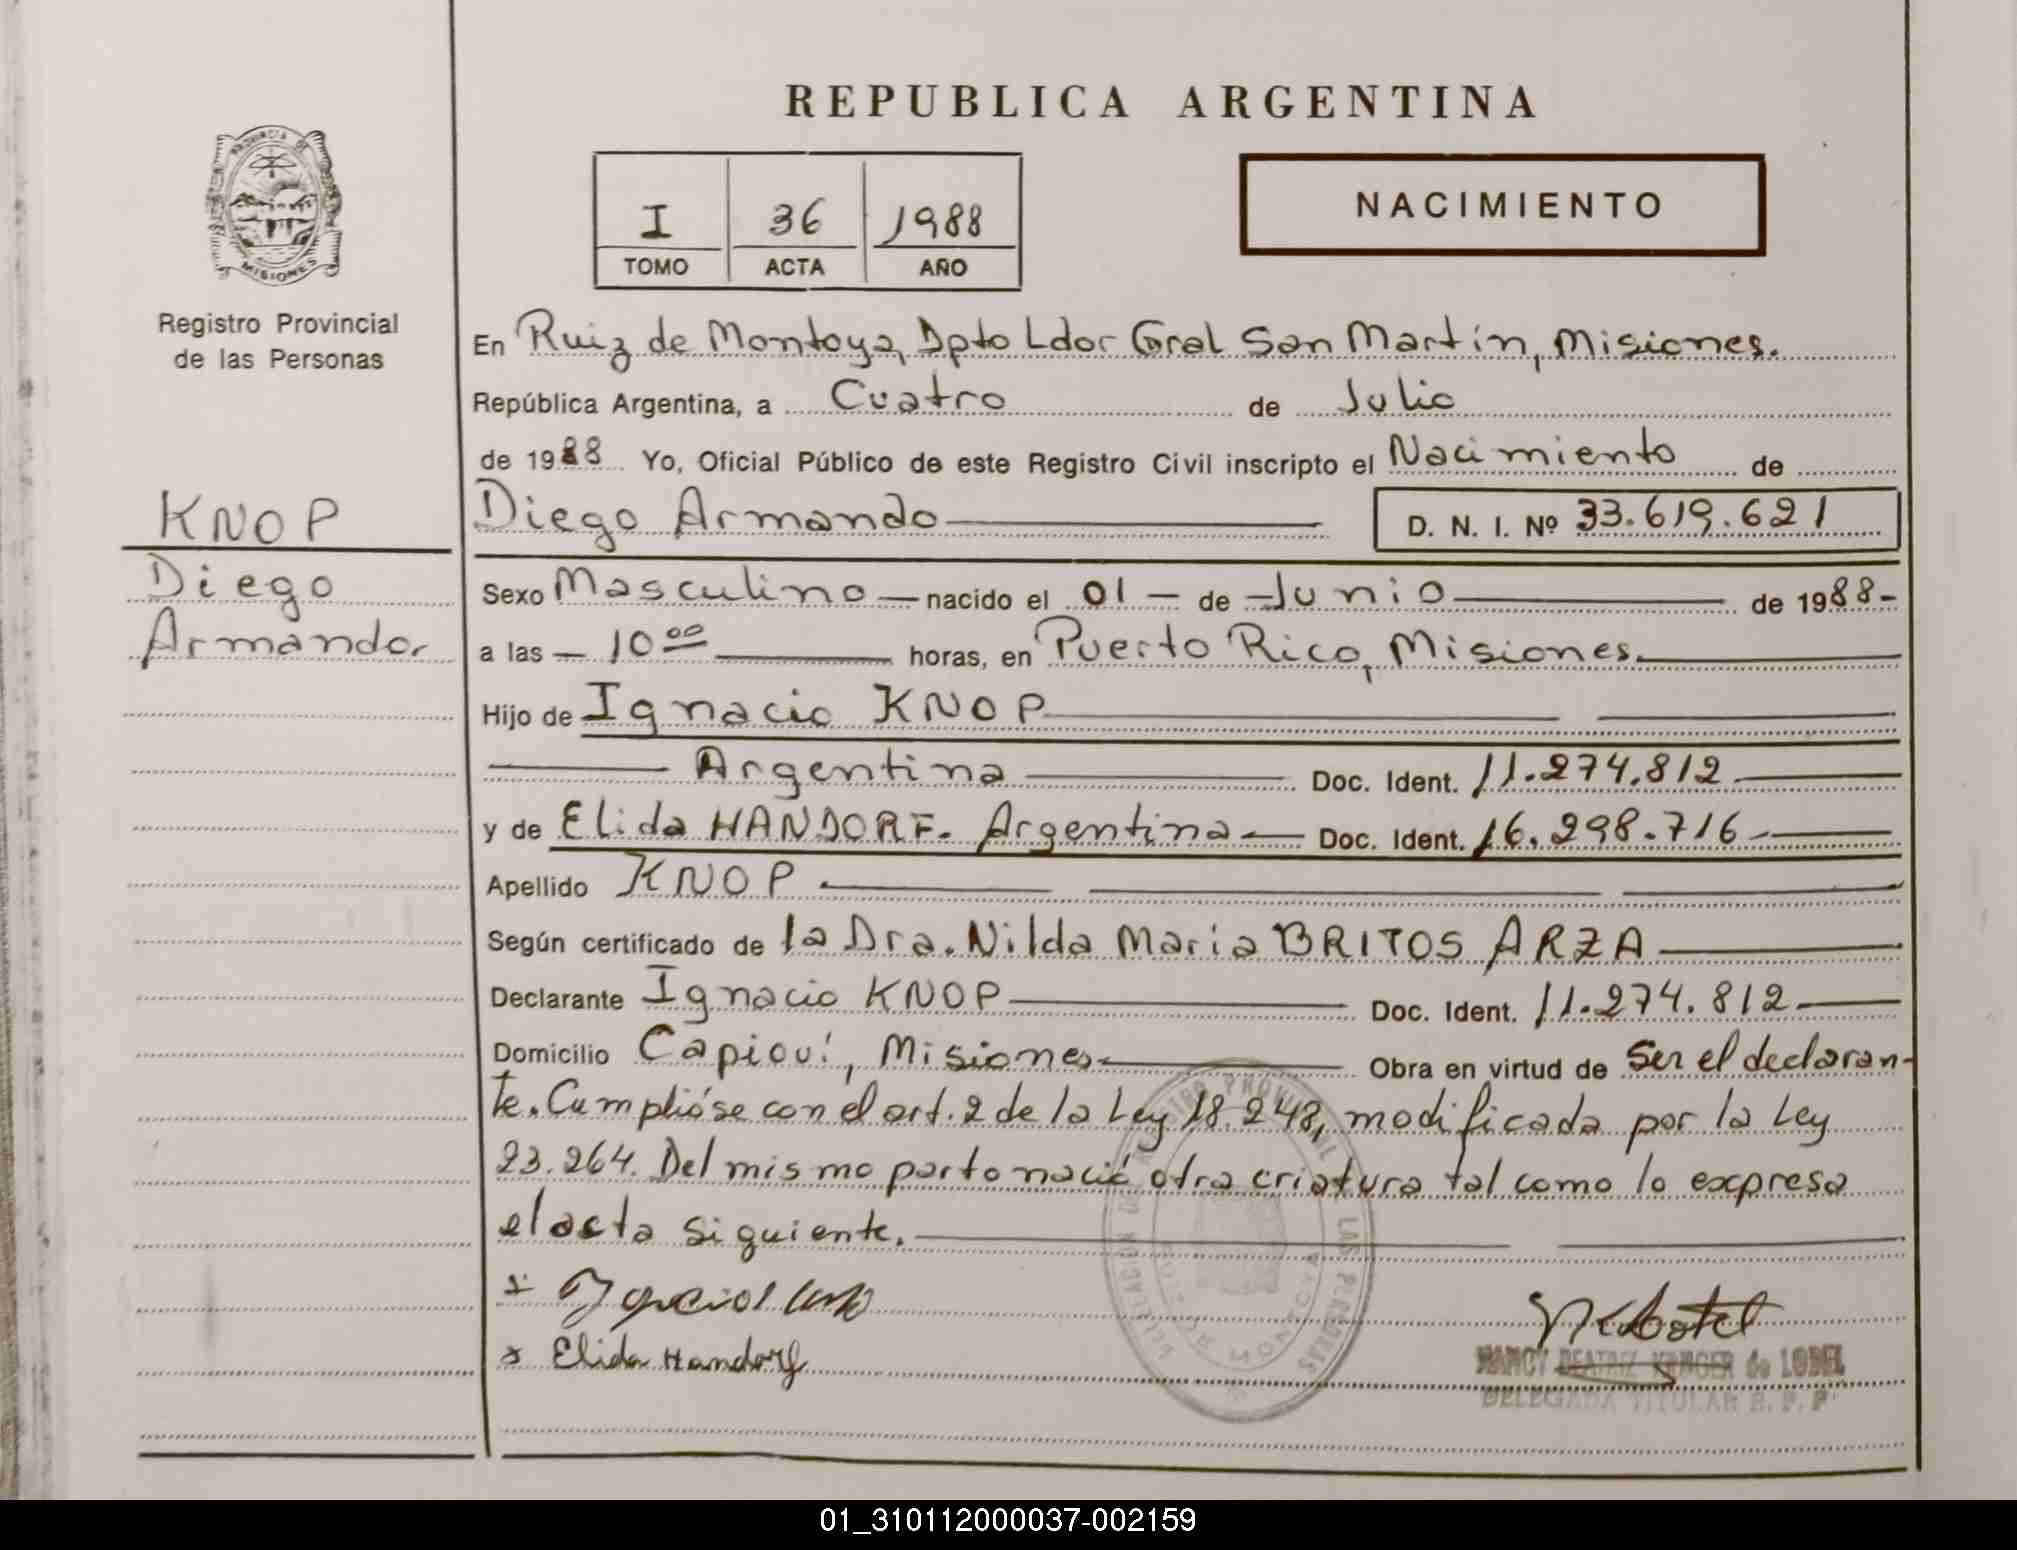 REPUBLICA ARGENTINA
PROVINCIA DE
MISIONES
Registro Provincial
de las Personas
I 36 1988
TOMO ACTA AÑO
NACIMIENTO
En Ruiz de Montoya, Dpto Ldor Gral San Martín, Misiones.
República Argentina, a Cuatro de Julio
de 1988 Yo, Oficial Público de este Registro Civil inscripto el Nacimiento de
KNOP
Diego
Armando.
Diego Armando D. N. I. Nº 33.619.621
Sexo Masculino nacido el 01 - de Junio de 1988-
a las - 10 00 horas, en Puerto Rico, Misiones.
Hijo de Ignacio KNOP
Argentina Doc. Ident. 11.274.812
y de Elida HANDORF. Argentina Doc. Ident. 16.298.716
Apellido KNOP
Según certificado de la Dra. Nilda Maria BRITOS ARZA
Declarante Ignacio KNOP Doc. Ident. 11.274.812
Domicilio Capioví, Misiones Obra en virtud de Ser el declaran-
te. Cumplióse con el art. 2 de la Ley 18.248, modificada por la Ley
23.264. Del mismo parto nació otra criatura tal como lo expresa
el acta siguiente.
x Elida Handorf
NANCY BEATRIZ KRUGER de LOBEL
DELEGADA TITULAR R. P. P
01_310112000037-002159